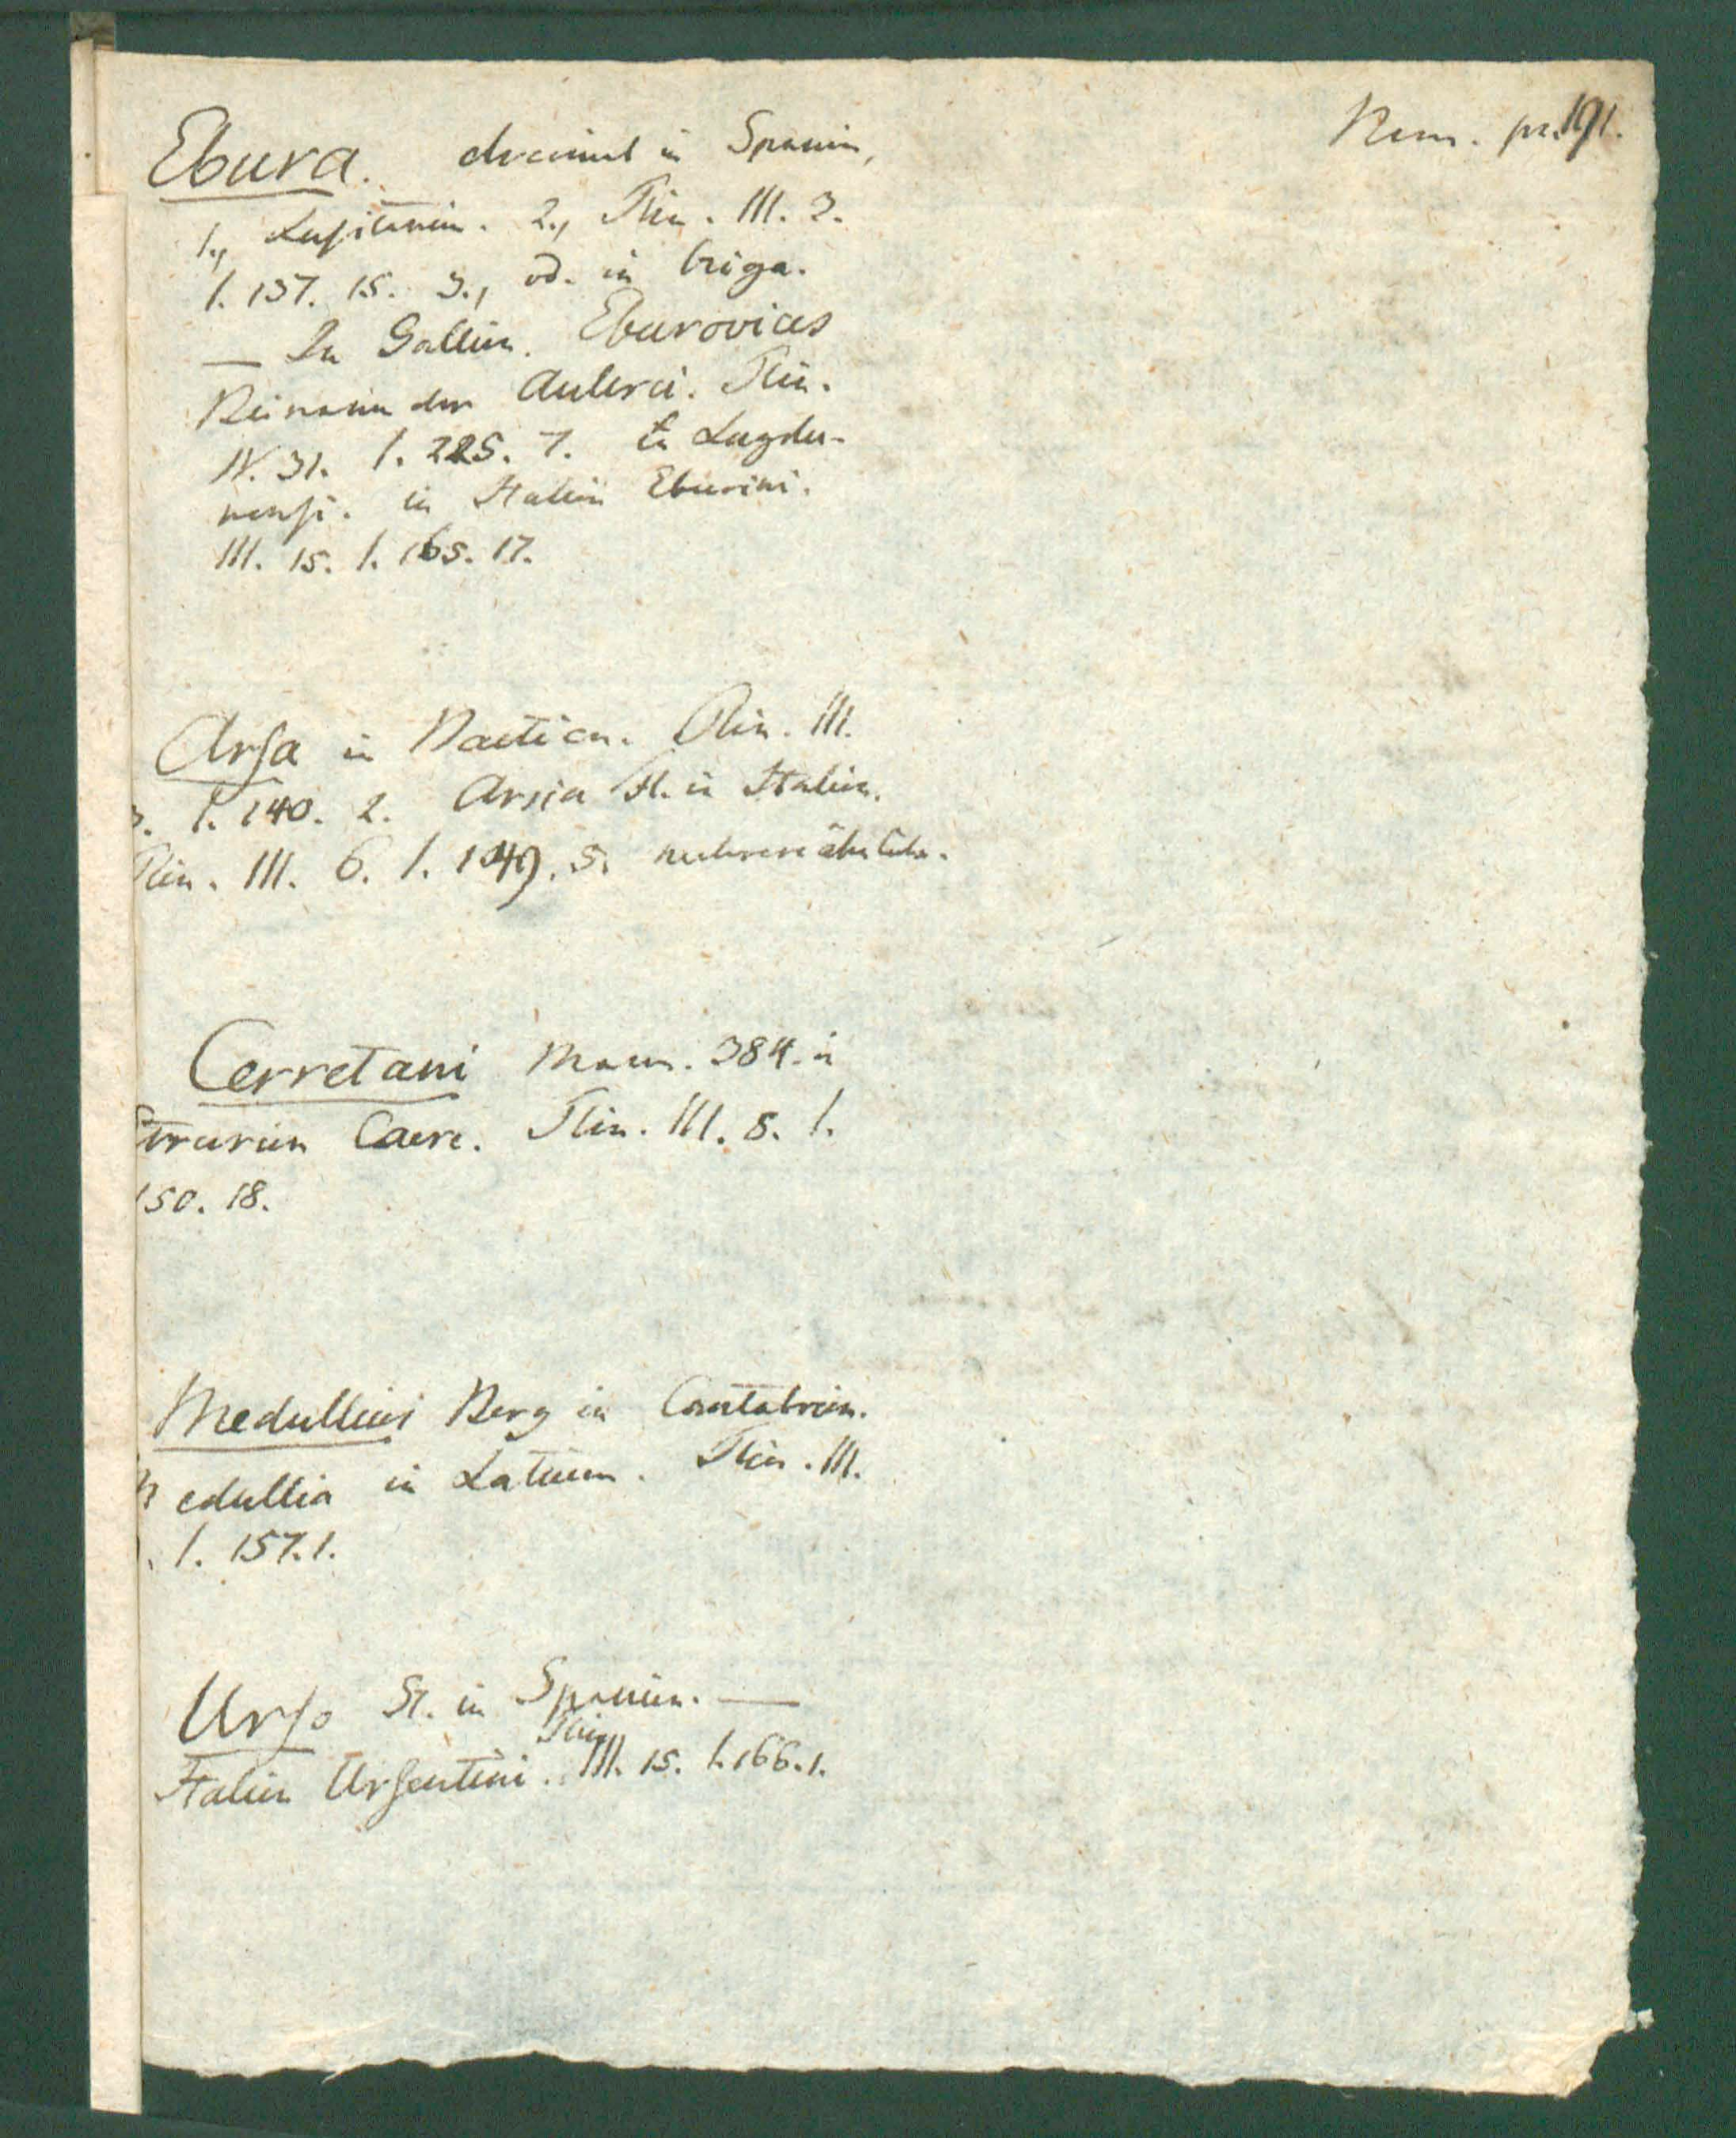 Nom. pr. 191.
Ebura. dreimal in Spanien,
1., Lusitanien. 2., Plin. III. 3.
1. 137. 15. 3., od. in briga.
— In Gallien. Eburovices
Beiname der Aulerci. Plin.
IV. 31. 1. 225. 7. in Lugdu-
nensi. in Italien Eburini.
III. 15. 1. 165. 17.
Arsa in Baetica. Plin. III.
3. 1. 140. 2. Arsia Fl. in Italien.
Plin. III. 6. 1. 149. 5.
Cerretani Mann. 384. in
Etrurien Caere. Plin. III. 8. 1.
150. 18.
Medullius Berg in Cantabrien.
Medullia in Latium. Plin. III.
. 1. 157. 1.
Urso St. in Spanien. —
Italien Ursentini. Plin. III. 15. 1. 166. 1.